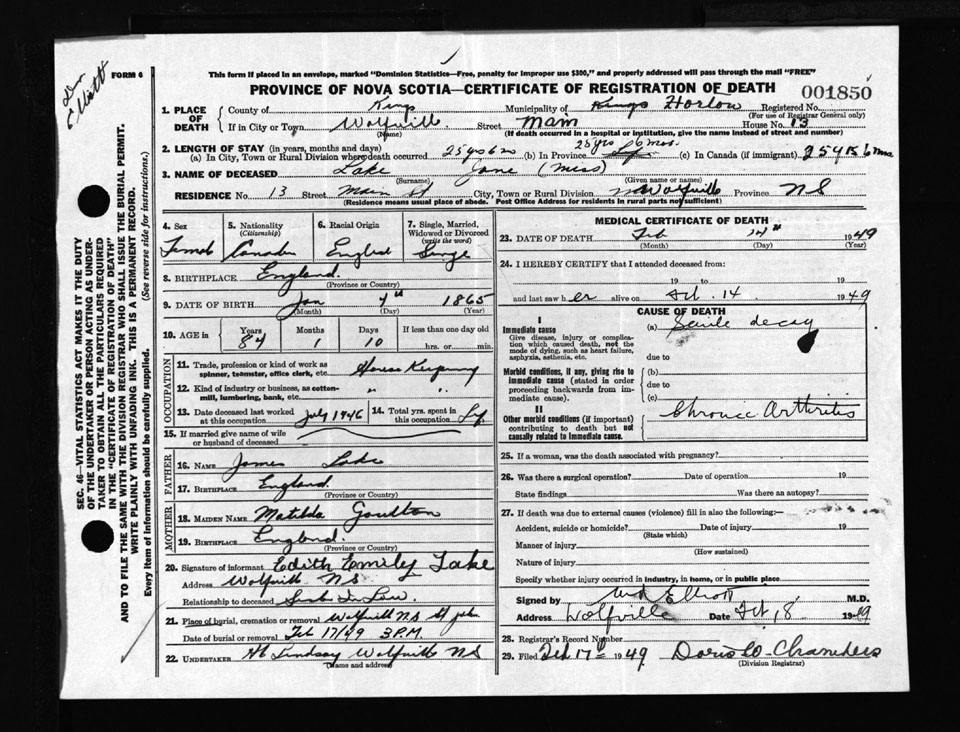 Dr
Elliott
FORM 6
This form if placed in an envelope, marked "Dominion Statistics—Free, penalty for improper use $300," and properly addressed will pass through the mail "FREE"
PROVINCE OF NOVA SCOTIA—CERTIFICATE OF REGISTRATION OF DEATH
001850
1. PLACE OF DEATH
County of Kings Municipality of Kings Horton Registered No.
(For use of Registrar General only)
If in City or Town Wolfville Street Main House No. 13
(Name) (If death occurred in a hospital or institution, give the name instead of street and number)
2. LENGTH OF STAY (in years, months and days) 25 yrs 6 mos.
(a) In City, Town or Rural Division where death occurred 25 yrs 6 m (b) In Province (c) In Canada (if immigrant) 25 yrs 6 mos
3. NAME OF DECEASED Lake Jane (Miss)
(Surname) (Given name or names)
RESIDENCE No. 13 Street Main St City, Town or Rural Division Wolfville Province NS
(Residence means usual place of abode. Post Office Address for residents in rural parts not sufficient)
4. Sex Female
5. Nationality (Citizenship) Canadian
6. Racial Origin English
7. Single, Married, Widowed or Divorced (write the word) Single
8. BIRTHPLACE England
(Province or Country)
9. DATE OF BIRTH Jan 4th 1865
(Month) (Day) (Year)
10. AGE in Years 84 Months 1 Days 10 If less than one day old hrs. or min.
OCCUPATION
11. Trade, profession or kind of work as spinner, teamster, office clerk, etc. House Keeping
12. Kind of industry or business, as cotton-mill, lumbering, bank, etc. " "
13. Date deceased last worked at this occupation July 1946
14. Total yrs. spent in this occupation Life
15. If married give name of wife or husband of deceased
FATHER
16. NAME James Lake
17. BIRTHPLACE England
(Province or Country)
MOTHER
18. MAIDEN NAME Matilda Goulton
19. BIRTHPLACE England
(Province or Country)
20. Signature of informant Edith Emily Lake
Address Wolfville NS
Relationship to deceased Sister In Law
21. Place of burial, cremation or removal Wolfville N.S St John
Date of burial or removal Feb 17/49 3 P.M.
22. UNDERTAKER Lindsay Wolfville NS
(Name and address)
MEDICAL CERTIFICATE OF DEATH
23. DATE OF DEATH Feb 14th 1949
(Month) (Day) (Year)
24. I HEREBY CERTIFY that I attended deceased from:
19 to 19
and last saw her alive on Feb. 14 1949
CAUSE OF DEATH
I
Immediate cause
Give disease, injury or complication which caused death, not the mode of dying, such as heart failure, asphyxia, asthenia, etc.
(a) Senile decay
due to
Morbid conditions, if any, giving rise to immediate cause (stated in order proceeding backwards from immediate cause).
(b)
due to
(c)
II
Other morbid conditions (if important) contributing to death but not causally related to immediate cause.
Chronic Arthritis
25. If a woman, was the death associated with pregnancy?
26. Was there a surgical operation? Date of operation 19
State findings Was there an autopsy?
27. If death was due to external causes (violence) fill in also the following:—
Accident, suicide or homicide? Date of injury 19
(State which)
Manner of injury
(How sustained)
Nature of injury
Specify whether injury occurred in industry, in home, or in public place
Signed by Elliott M.D.
Address Wolfville Date Feb, 18 1949
28. Registrar's Record Number
29. Filed Feb 17th 1949 Doris Chambers
(Division Registrar)
SEC. 46—VITAL STATISTICS ACT MAKES IT THE DUTY
OF THE UNDERTAKER OR PERSON ACTING AS UNDER-
TAKER TO OBTAIN ALL THE PARTICULARS REQUIRED
IN THE "CERTIFICATE OF REGISTRATION OF DEATH"
AND TO FILE THE SAME WITH THE DIVISION REGISTRAR WHO SHALL ISSUE THE BURIAL PERMIT.
WRITE PLAINLY WITH UNFADING INK. THIS IS A PERMANENT RECORD.
Every item of information should be carefully supplied. (See reverse side for instructions.)